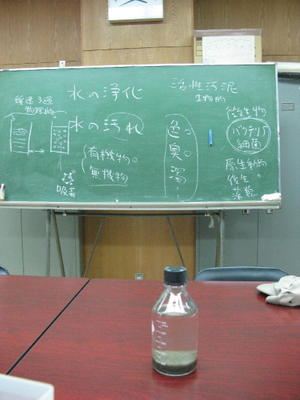 水の浄化
活性汚泥
生物的
緩速ろ過
物理的
水の汚れ
色
臭
濁
有機物
無機物
吸着
微生物
バクテリア
細菌
原生動物
後生〃
藻類